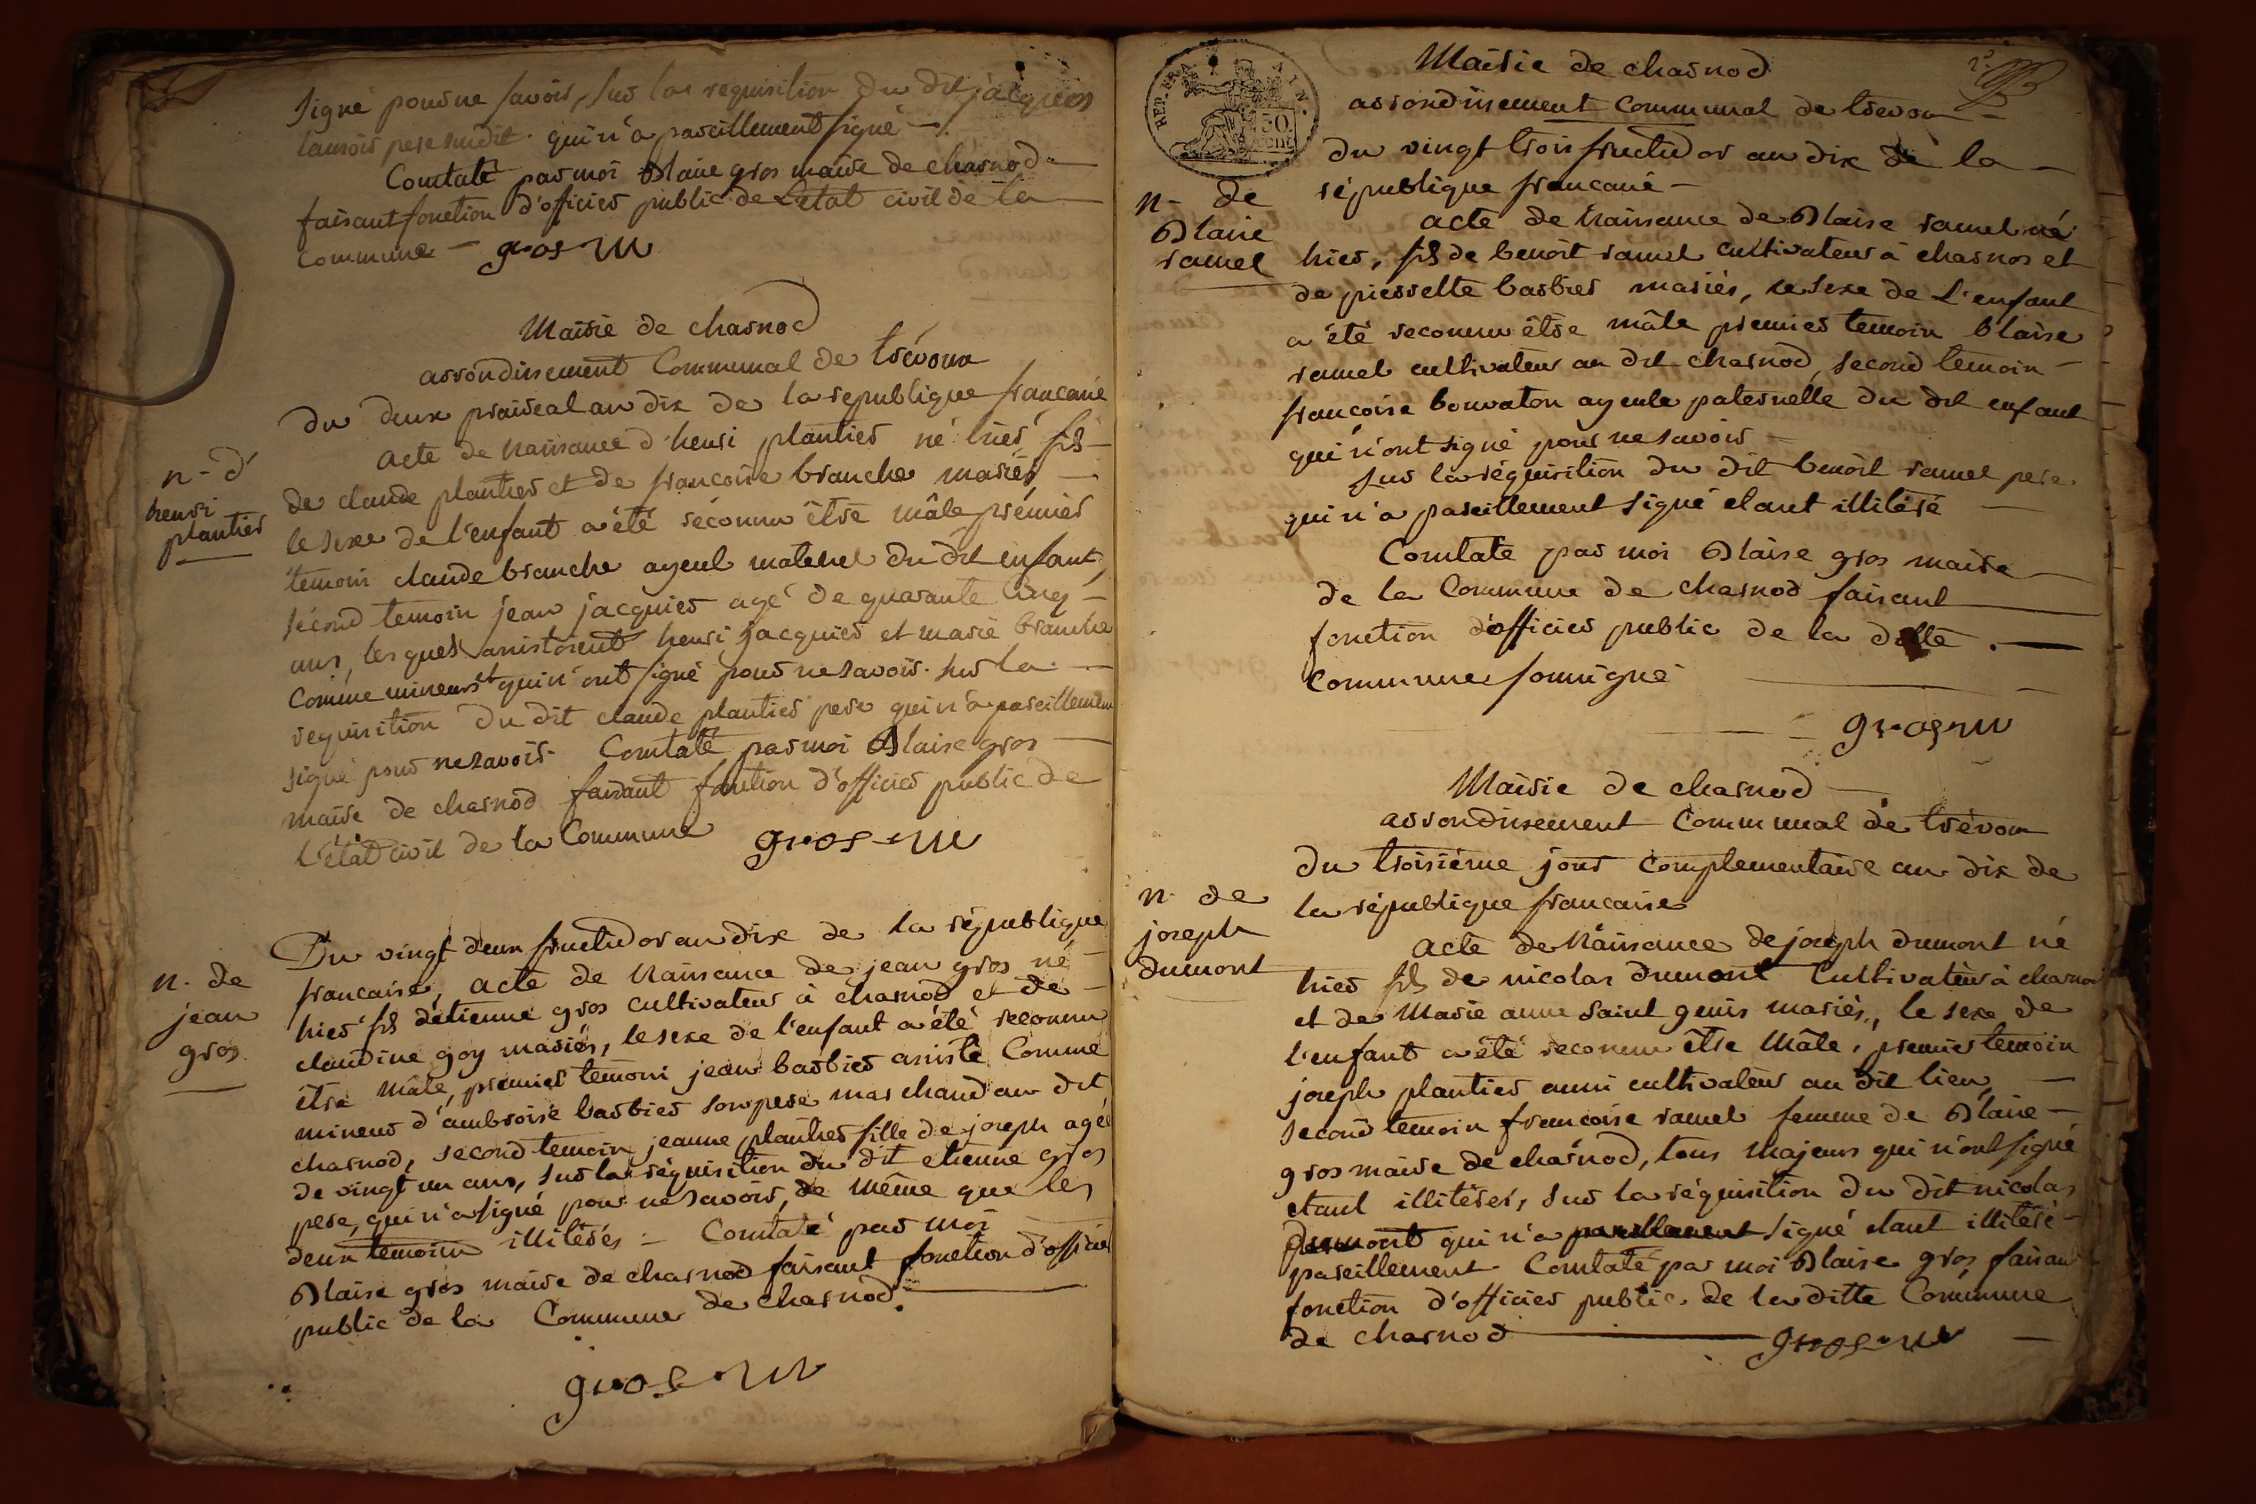 signé pour ne savoir, sur la requisition du dit jacques
lansois pere susdit qui n'a pareillement signé —
Constaté par moi Blaise gros maire de charnod —
faisant fonction d'officier public de L'état civil de la —
Commune — gros m
Mairie de charnod
arrondissement Communal de trévoux
du deux prairéal an dix de la republique francaise
n - d'
henri
plantier
acte de Naissance d'henri plantier né hier fils —
de claude plantier et de francoise branche mariés —
le sexe de l'enfant a été réconnu être mâle prémier
temoin claude branche ayeul maternel du dit enfant,
sécond temoin jean jacquier agé de quarante cinq —
ans, lesquels assistoient henri jacquier et marie branche
Comme mineurs et qui n'ont signé pour ne savoir. sur la —
requisition du dit claude plantier pere qui n'a pareillement
signé pour ne savoir. Constaté par moi Blaise gros —
maire de charnod faisant fonction d'officier public de
L'état civil de la Commune gros m
n. de
jean
gros
Du vingt deux fructidor an dix de la république
francaise, acte de Naissance de jean gros né —
hier fils détienne gros cultivateur à charnod et de —
claudine goy mariés, le sexe de l'enfant a été reconnu
être mâle, premier temoin jean barbier assisté Comme
mineur d'ambroise barbier son pere marchand au dit
charnod, second temoin jeanne plantier fille de joseph agée
de vingt un ans, sur la réquisition du dit etienne gros
pere, qui n'a signé pour ne savoir, de même que les
deux temoins illitérés — Constaté par moi
Blaise gros maire de charnod faisant fonction d'officier
public de la Commune de charnod.
gros m
REP. FRA
AIN.
50
CENT
2e
Mairie de charnod
arrondissement Communal de trevoux —
du vingt trois fructidor an dix de la —
république francaise —
n - de
Blaise
ramel
acte de Naissance de Blaise ramel né
hier, fils de benoit ramel cultivateur à charnos et
de pierrette barbier mariés, le sexe de L'enfant
a été reconnu être mâle premier temoin blaise
ramel cultivateur au dit charnod, second temoin —
francoise bonvaton ayeule paternelle du dit enfant
qui n'ont signé pour ne savoir —
sur la réquisition du dit benoit ramel pere
qui n'a pareillement signé etant illitéré —
Constaté par moi Blaise gros maire —
de la Commune de charnod faisant —
fonction d'officier public de la ditte . —
Commune soussigné —
gros m
Mairie de charnod —
arrondissement Communal de trévoux
du troisiéme jour complementaire an dix de
la république francaise
n. de
joseph
dumont
acte de Naissance de joseph dumont né
hier fils de nicolas dumont Cultivateur à charnod
et de Marie anne Saint genis mariés, le sexe de
l'enfant a été reconnu être Mâle, premier temoin
joseph plantier aussi cultivateur au dit lieu —
second temoin francoise ramel femme de Blaise —
gros maire de charnod, tous Majeurs qui n'ont signé
etant illitérés, sur la réquisition du dit nicolas
Dumont qui n'a pareillement signé etant illitéré —
pareillement Constaté par moi Blaise gros faisant
fonction d'officier public de la ditte Commune
de charnod — gros m —